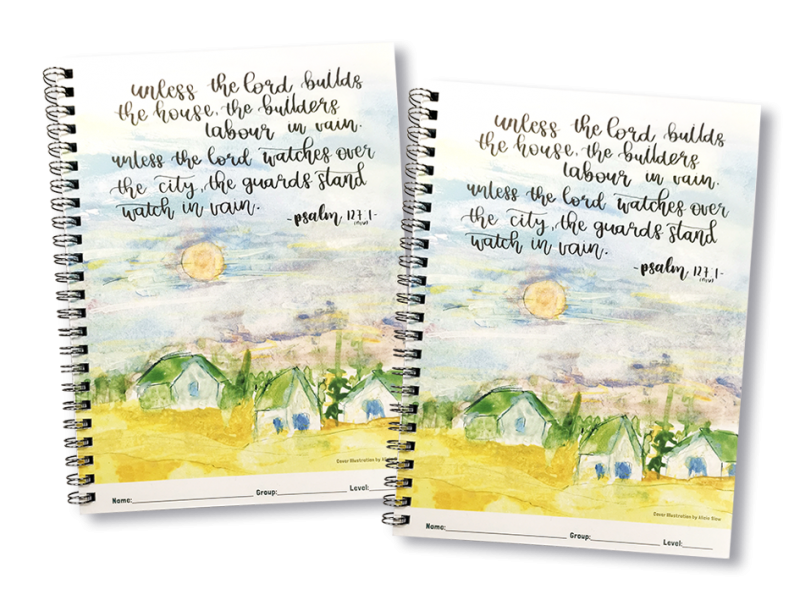 unless the lord builds
the house, the builders
labour in vain.
unless the lord watches over
the city, the guards stand
watch in vain.
-psalm 127 1-
(niv)
Cover Illustration by
Name: Group: Level:
unless the lord builds
the house, the builders
labour in vain.
unless the lord watches over
the city, the guards stand
watch in vain.
-psalm 127 1-
(niv)
Cover Illustration by
Name: Group: Level: